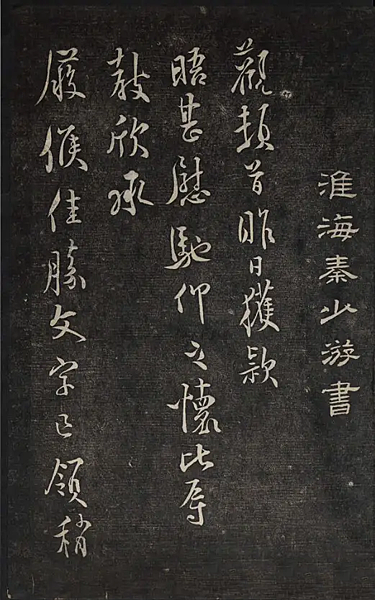 淮海秦少游書
觀頓首昨日獲款
晤甚慰馳仰之懷比辱
教欣承
履候佳勝文字已領稍